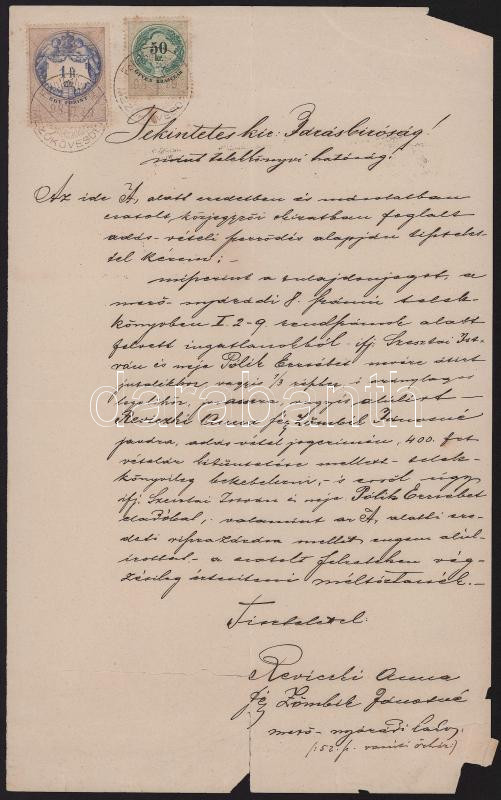 1 ft
EGY FORINT
50
kr.
ÖTVEN KRAJCZÁR
MEZŐKÖVESD
Tekintetes kir: Járásbíróság!
mint telekkönyvi hatóság!
Az ide A, alatt eredetben és másolatban
csatolt, közjegyzői okiratban foglalt
adás-vételi szerződés alapján tisztelet-
tel kérem:
miszerint a tulajdonjogot, a
mező-nyárádi 8. számú telek-
könyvben I. 2-9. rendszámok alatt
felvett ingatlanokból ifj. Szentai Ist-
ván és neje Polik Erzsébet nevére átírt
jutalékra, vagyis 1/3 részre
alulírt
Reviczki Anna féj Zömbik Jánosné
javára, adás-vétel jogczímén, 400. frt
vételár kitüntetése mellett telek-
könyvileg bekebelezni, - és erről úgy
ifj. Szentai István és neje Polik Erzsébet
eladókat, valamint az A, alatti ere-
deti visszazárása mellett engem alul-
írottat a csatolt felzeteken vég-
zésileg értesíteni méltóztassék.
Tisztelettel:
Reviczki Anna
féj Zömbik Jánosné
mező-nyárádi lakos
darabanth